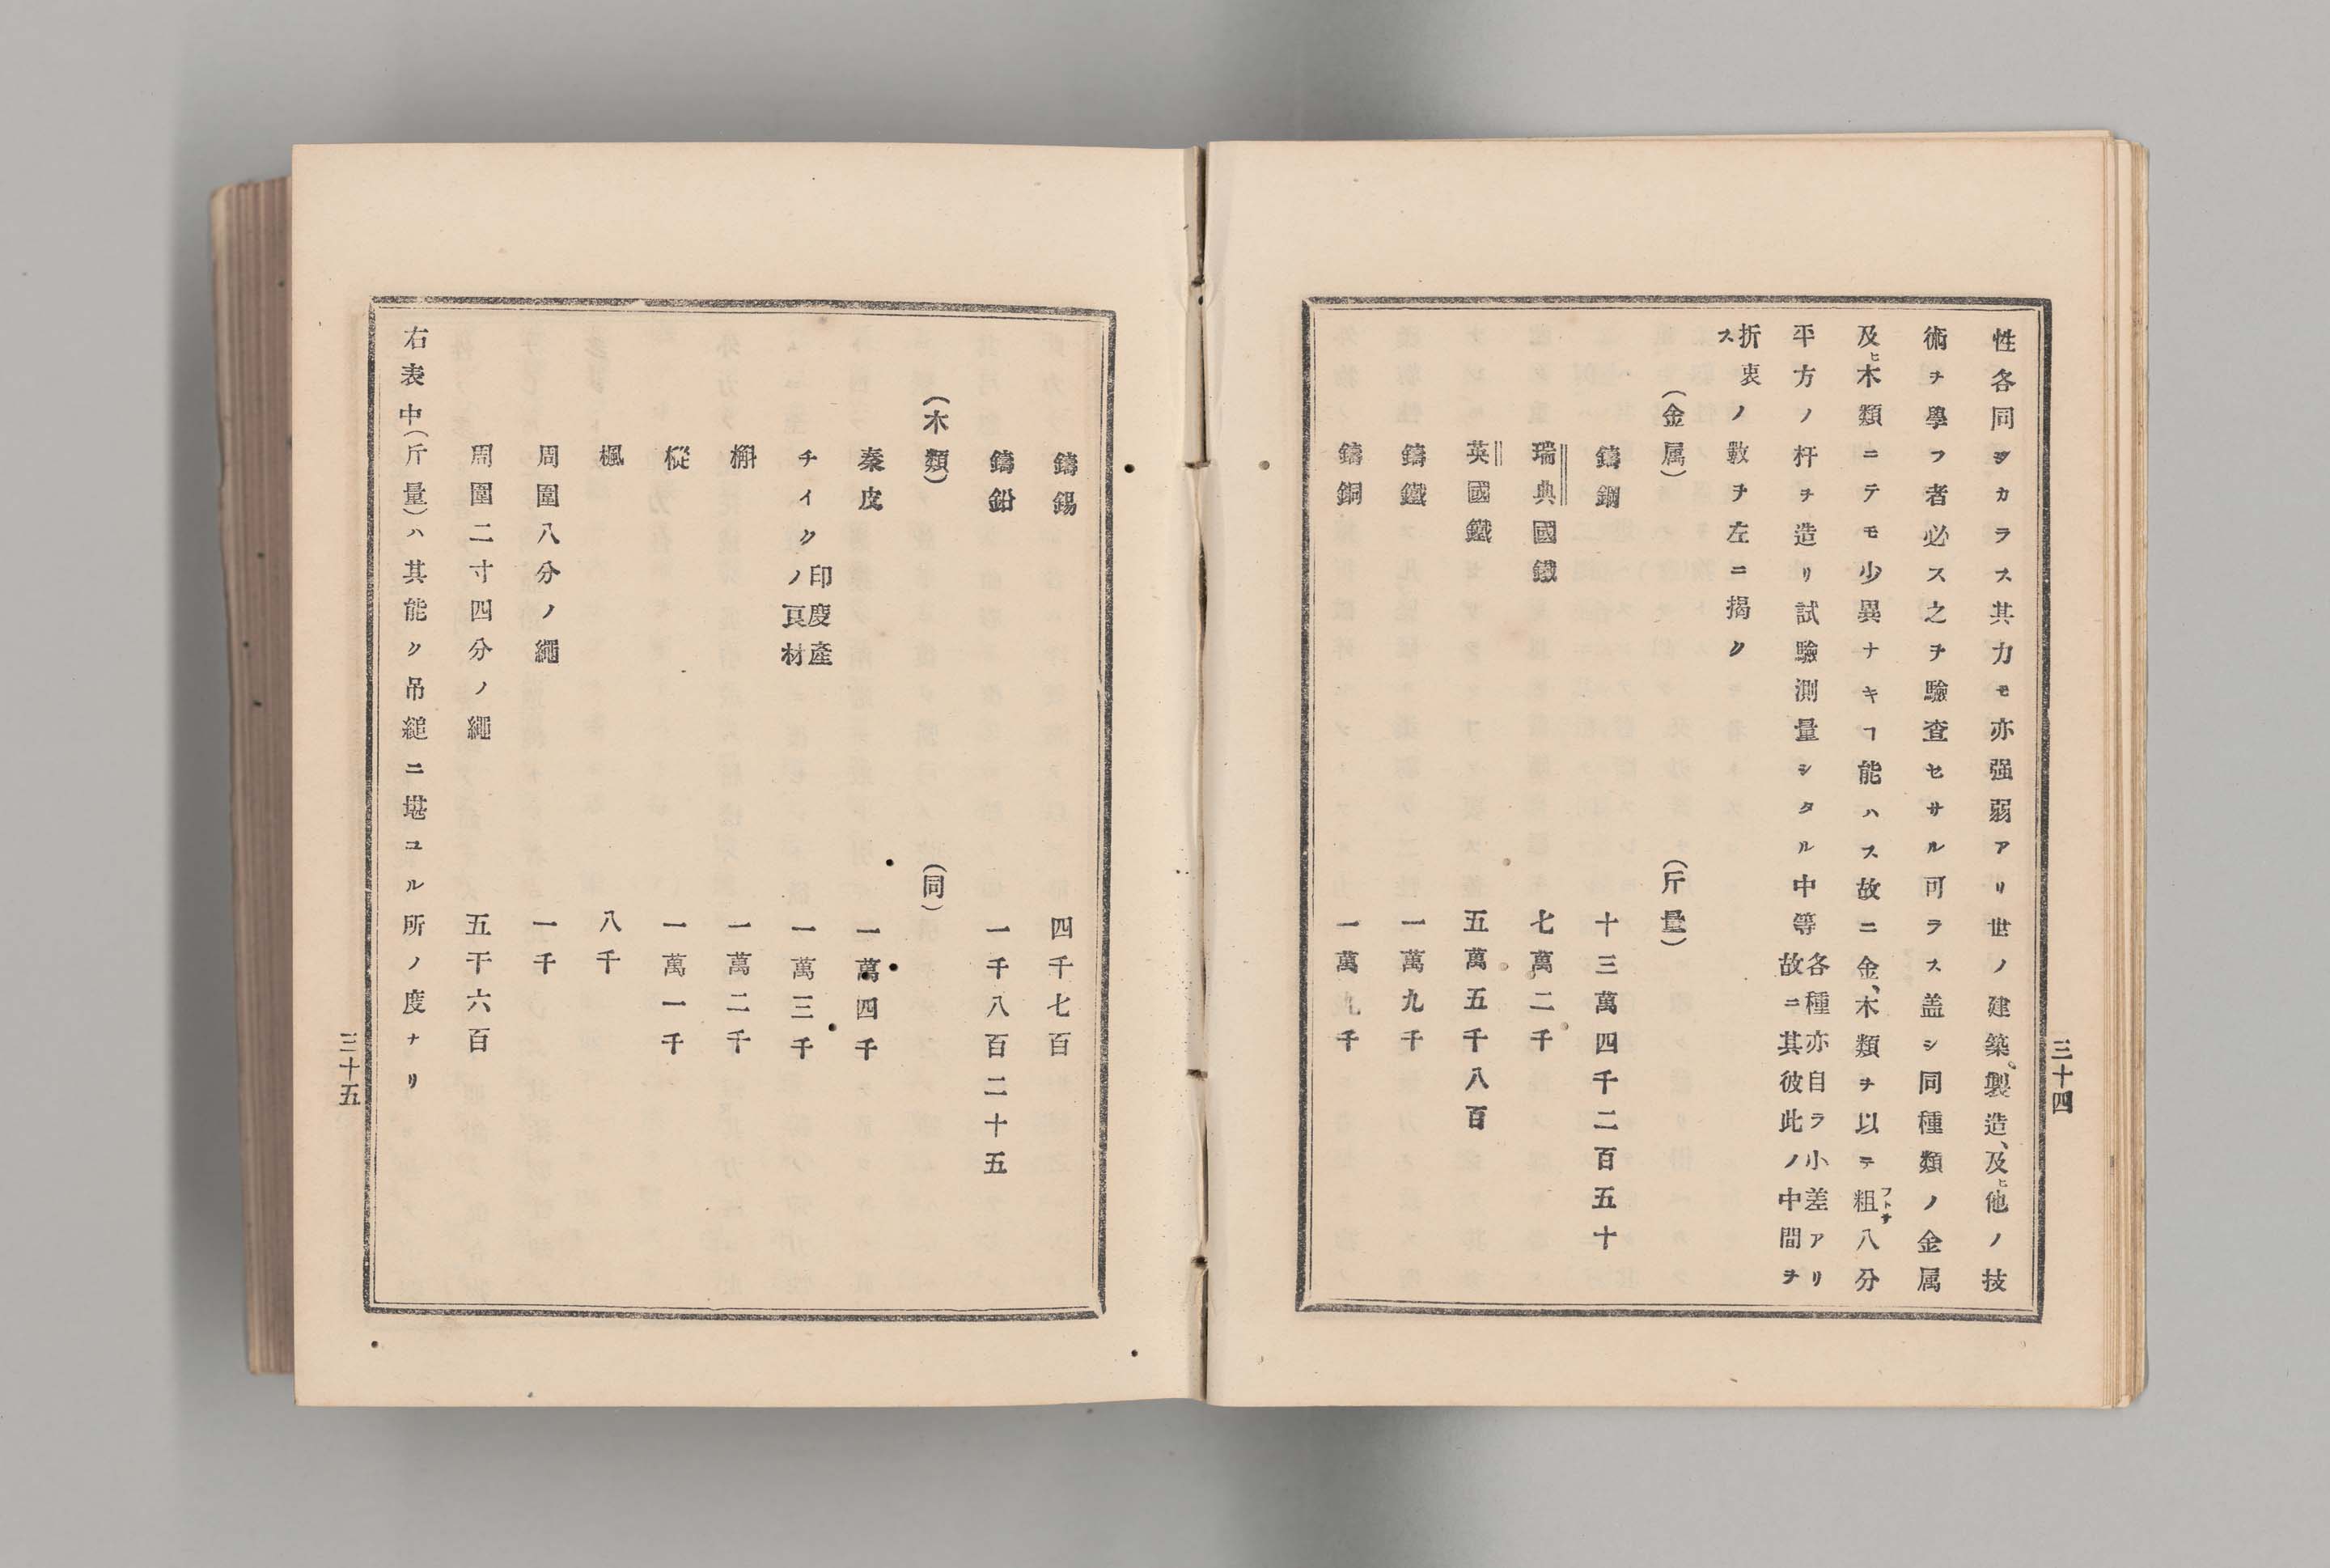 性各同シカラス其力モ亦强弱アリ世ノ建築、製造、及ヒ他ノ技
術ヲ學フ者必ス之ヲ驗査セサル可ラス盖シ同種類ノ金属
及ヒ木類ニテモ少異ナキヿ能ハス故ニ金、木類ヲ以テ粗フトサ八分
平方ノ杆ヲ造リ試驗測量シタル中等各種亦自ラ小差アリ故ニ其彼此ノ中間ヲ
折衷スノ數ヲ左ニ揭ク
(金属) (斤量)
鑄鋼 十三萬四千二百五十
瑞典國鐵 七萬二千
英國鐵 五萬五千八百
鑄鐵 一萬九千
鑄銅 一萬九千
三十四
鑄錫 四千七百
鑄鉛 一千八百二十五
(木類) (同)
秦皮 一萬四千
チイク印度產ノ良材 一萬三千
槲 一萬二千
樅 一萬一千
楓 八千
周圍八分ノ繩 一千
周圍二寸四分ノ繩 五千六百
右表中(斤量)ハ其能ク吊縋ニ堪ユル所ノ度ナリ
三十五